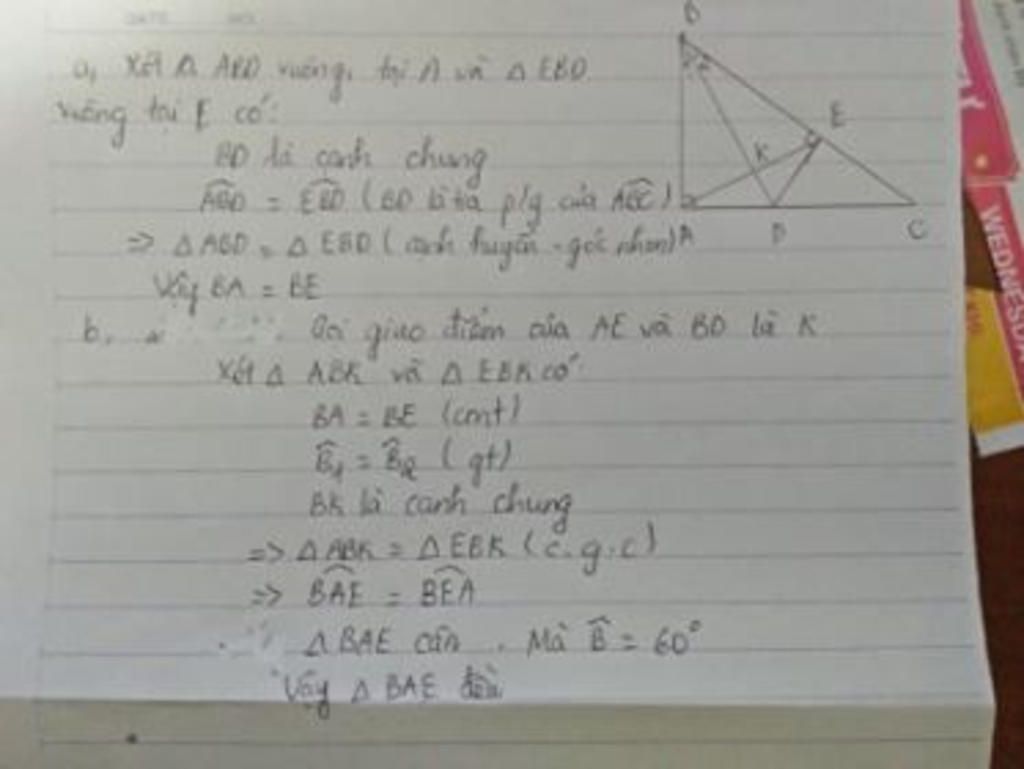 DATE NO.
a, Xét △ ABD vuông tại A và △ EBD
vuông tại E có:
BD là cạnh chung
ABD = EBD (BD là tia p/g của ABC)
=> △ ABD = △ EBD (cạnh huyền - góc nhọn)
Vậy BA = BE
b, Gọi giao điểm của AE và BD là K
Xét △ ABK và △ EBK có:
BA = BE (cmt)
B̂1 = B̂2 (gt)
BK là cạnh chung
=> △ ABK = △ EBK (c.g.c)
=> BAE = BEA
△ BAE cân. Mà B̂ = 60°
Vậy △ BAE đều
B
2
E
K
A
D
C
WEDNESDA